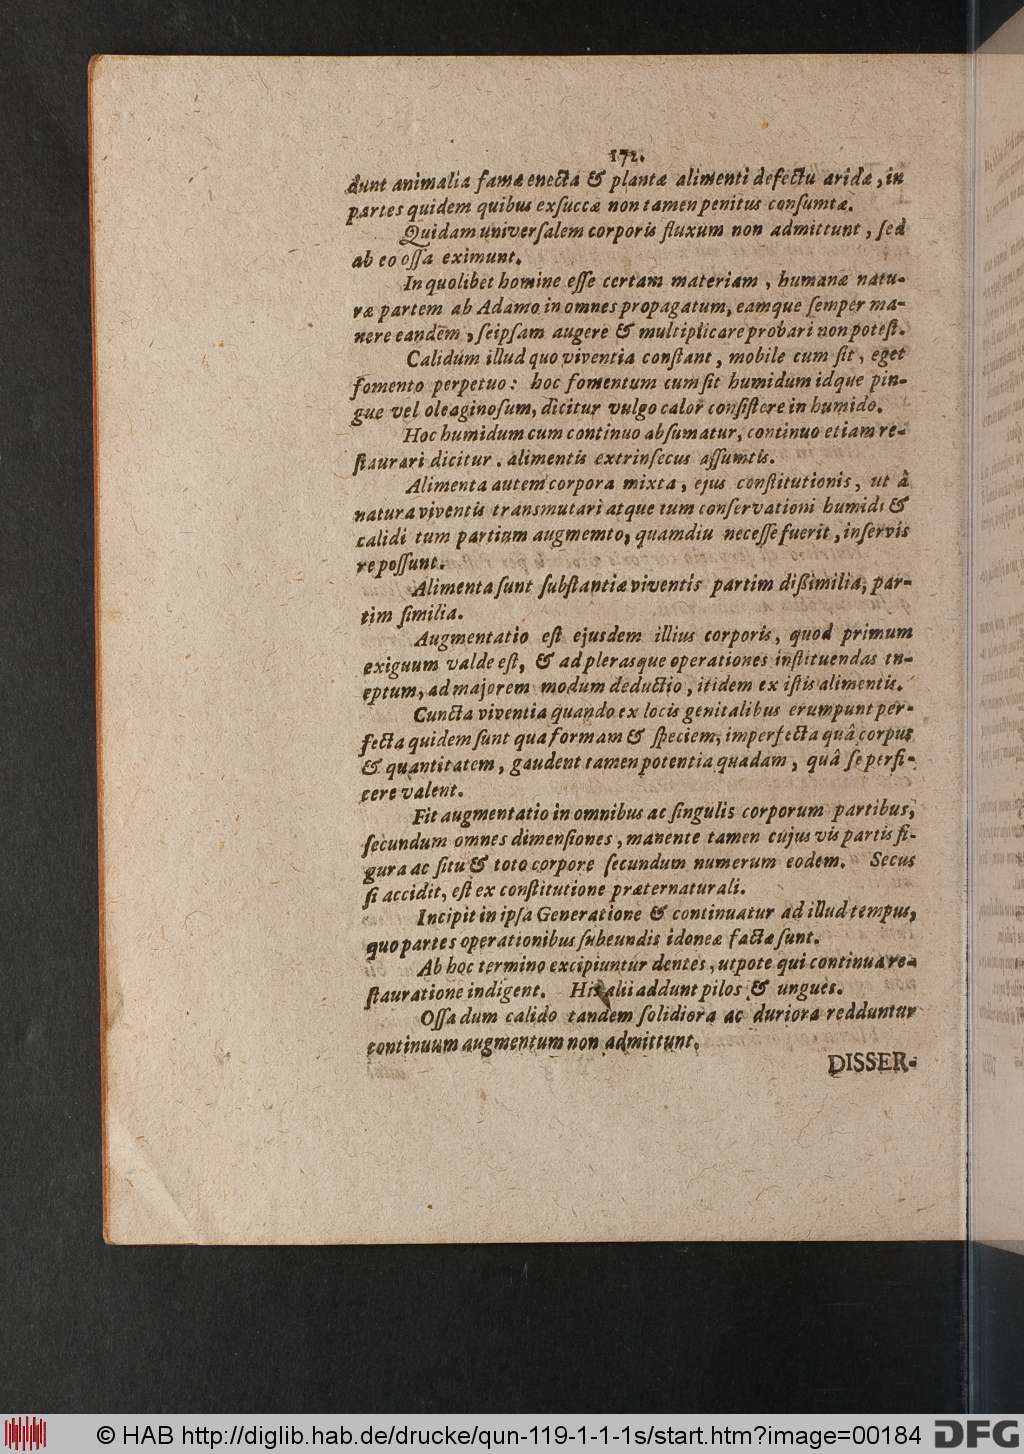 172.
dunt animalia famæ enecta & plantæ alimenti defectu aridæ, in
partes quidem quibus exſuccæ non tamen penitus conſumtæ.
Quidam univerſalem corporis fluxum non admittunt, ſed
ab eo oſſa eximunt.
In quolibet homine eſſe certam materiam, humanæ natu-
ræ partem ab Adamo in omnes propagatum, eamque ſemper ma-
nere eandem, ſeipſam augere & multiplicare probari non poteſt.
Calidum illud quo viventia conſtant, mobile cum ſit, eget
fomento perpetuo: hoc fomentum cum ſit humidum idque pin-
gue vel oleaginoſum, dicitur vulgo calor conſiſtere in humido.
Hoc humidum cum continuo abſumatur, continuo etiam re-
ſtaurari dicitur. alimentis extrinſecus aſſumtis.
Alimenta autem corpora mixta, ejus conſtitutionis, ut à
natura viventis transmutari atque tum conſervationi humidi &
calidi tum partium augmemto, quamdiu neceſſe fuerit, inſervis
re poſſunt.
Alimenta ſunt ſubſtantiæ viventis partim dißimilia, par-
tim ſimilia.
Augmentatio eſt ejusdem illius corporis, quod primum
exiguum valde eſt, & ad plerasque operationes inſtituendas in-
eptum, ad majorem modum deductio, itidem ex iſtis alimentis.
Cuncta viventia quando ex locis genitalibus erumpunt per-
fecta quidem ſunt qua formam & ſpeciem, imperfecta quâ corpus
& quantitatem, gaudent tamen potentia quadam, quâ ſe perfi-
cere valent.
Fit augmentatio in omnibus ac ſingulis corporum partibus,
ſecundum omnes dimenſiones, manente tamen cujus vis partis fi-
gura ac ſitu & toto corpore ſecundum numerum eodem. Secus
ſi accidit, eſt ex conſtitutione præternaturali.
Incipit in ipſa Generatione & continuatur ad illud tempus,
quo partes operationibus ſubeundis idoneæ factæ ſunt.
Ab hoc termino excipiuntur dentes, utpote qui continua re-
ſtauratione indigent. His alii addunt pilos & ungues.
Oſſa dum calido tandem ſolidiora ac duriora redduntur
continuum augmentum non admittunt.
DISSER-
© HAB http://diglib.hab.de/drucke/qun-119-1-1-1s/start.htm?image=00184
DFG